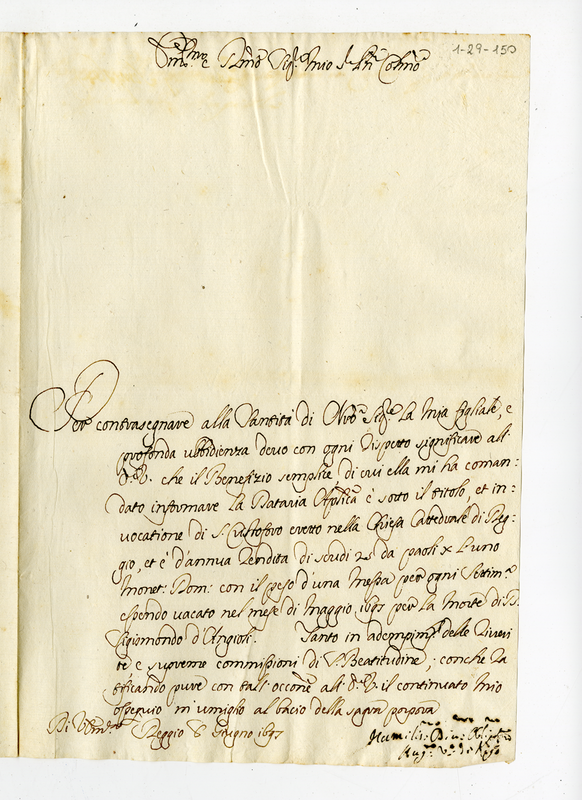 1-29-150
Em.mo e R.mo Sig.r mio P.ron Col.mo
Per contrasegnare alla Santità di N.ro Sig.re la mia figliale, e
profonda ubbidienza devo con ogni rispetto significare all'
E.V. che il Benefizio semplice, di cui ella mi ha coman:
dato informare la Dataria Ap.lica è sotto il titolo, et in:
vocatione di S. Cristoforo eretto nella Chiesa Cattedrale di Reg:
gio, et è d'annua Rendita di scudi 25 da paoli x l'uno
monet: Rom: con il peso d'una messa per ogni Settim.a
essendo vacato nel mese di Maggio 1697 per la morte di D.
Sigismondo d'Angioli. Tanto in adempim.to delle Riveri
te e supreme commissioni di S. Beatitudine; con che ra
tificando pure con tall' occ.one all' E.V. il continuato mio
ossequio m'umiglio al bacio della sagra porpora
Di V. Em.za Reggio 8 Giugno 1697
Humiliss: Div:
Aug: